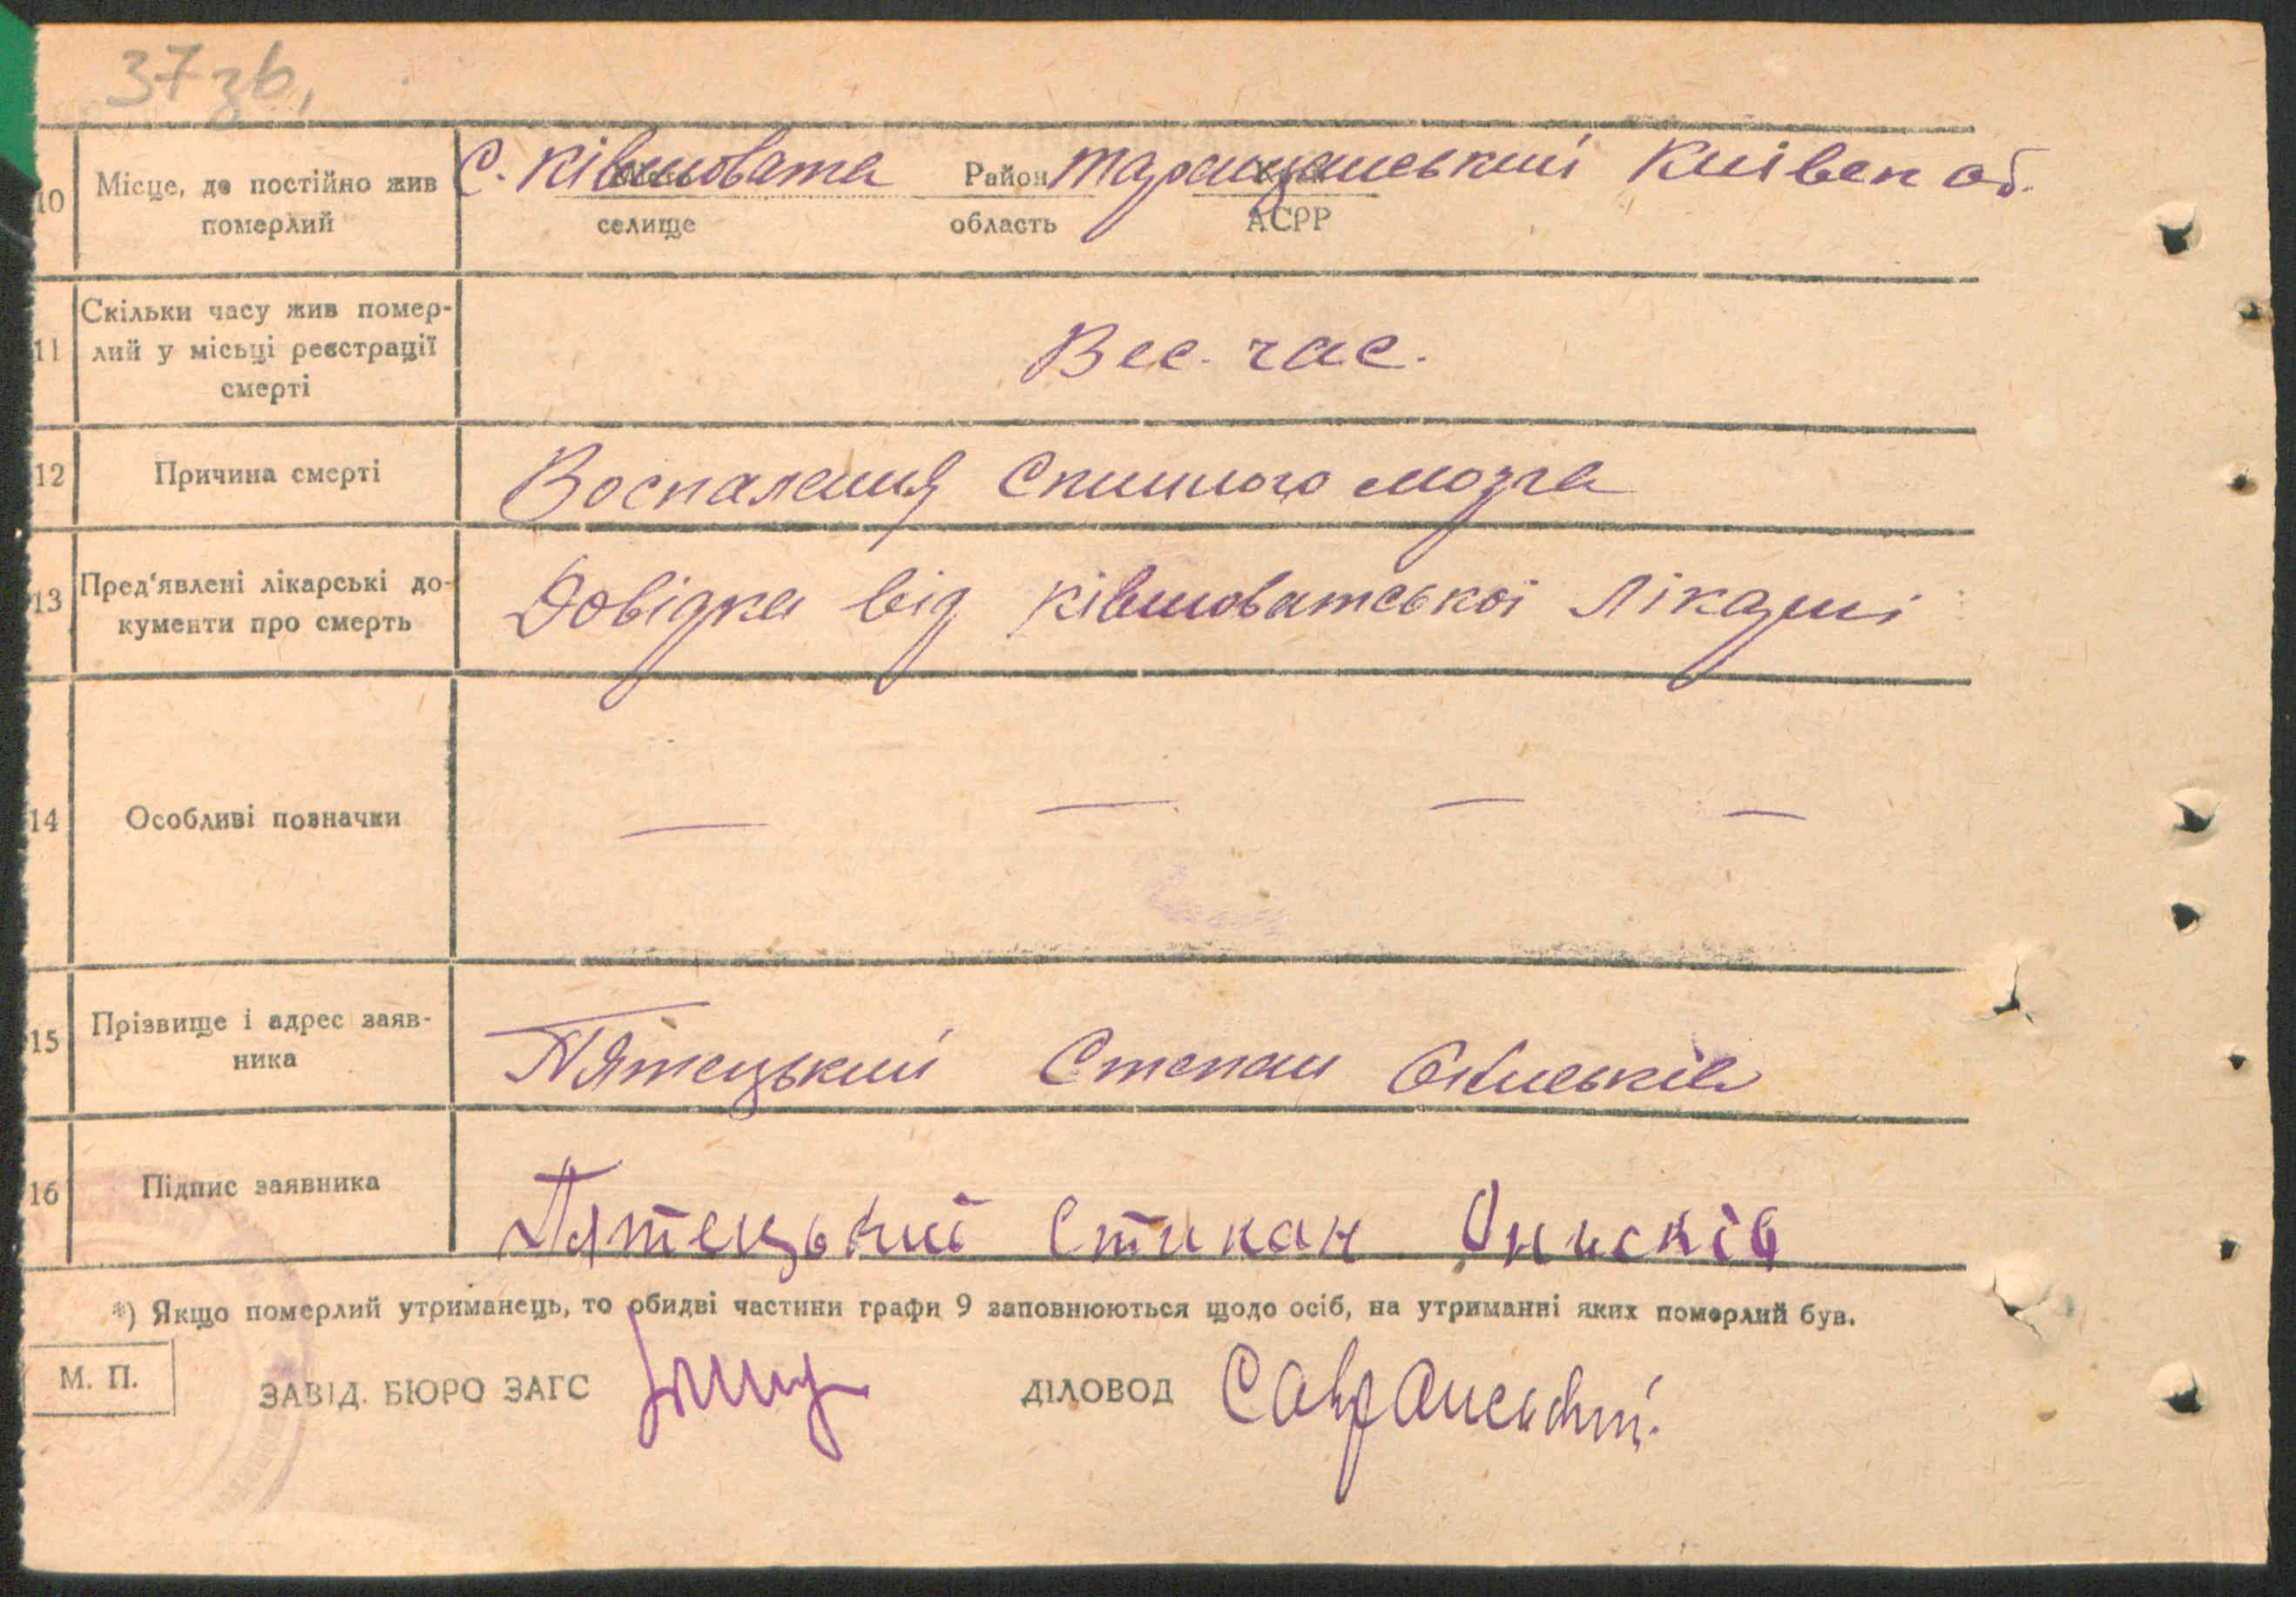 37 зв,
10 Місце, де постійно жив померлий
С. Ківшовата Район Таращанський Київск об.
селище область АСРР
11 Скільки часу жив помер-
лий у місьці реєстрації
смерті
Вес. час.
12 Причина смерті Воспаления Спинного мозга
13 Пред'явлені лікарські до-
кументи про смерть
Довідка від Ківшоватської Лікарні
14 Особливі позначки — — — —
15 Прізвище і адрес заяв-
ника
П'ятецький Степан
16 Підпис заявника Пятецький Онисків
*) Якщо померлий утриманець, то обидві частини графи 9 заповнюються щодо осіб, на утриманні яких померлий був.
М. П.
ЗАВІД. БЮРО ЗАГС ДІЛОВОД